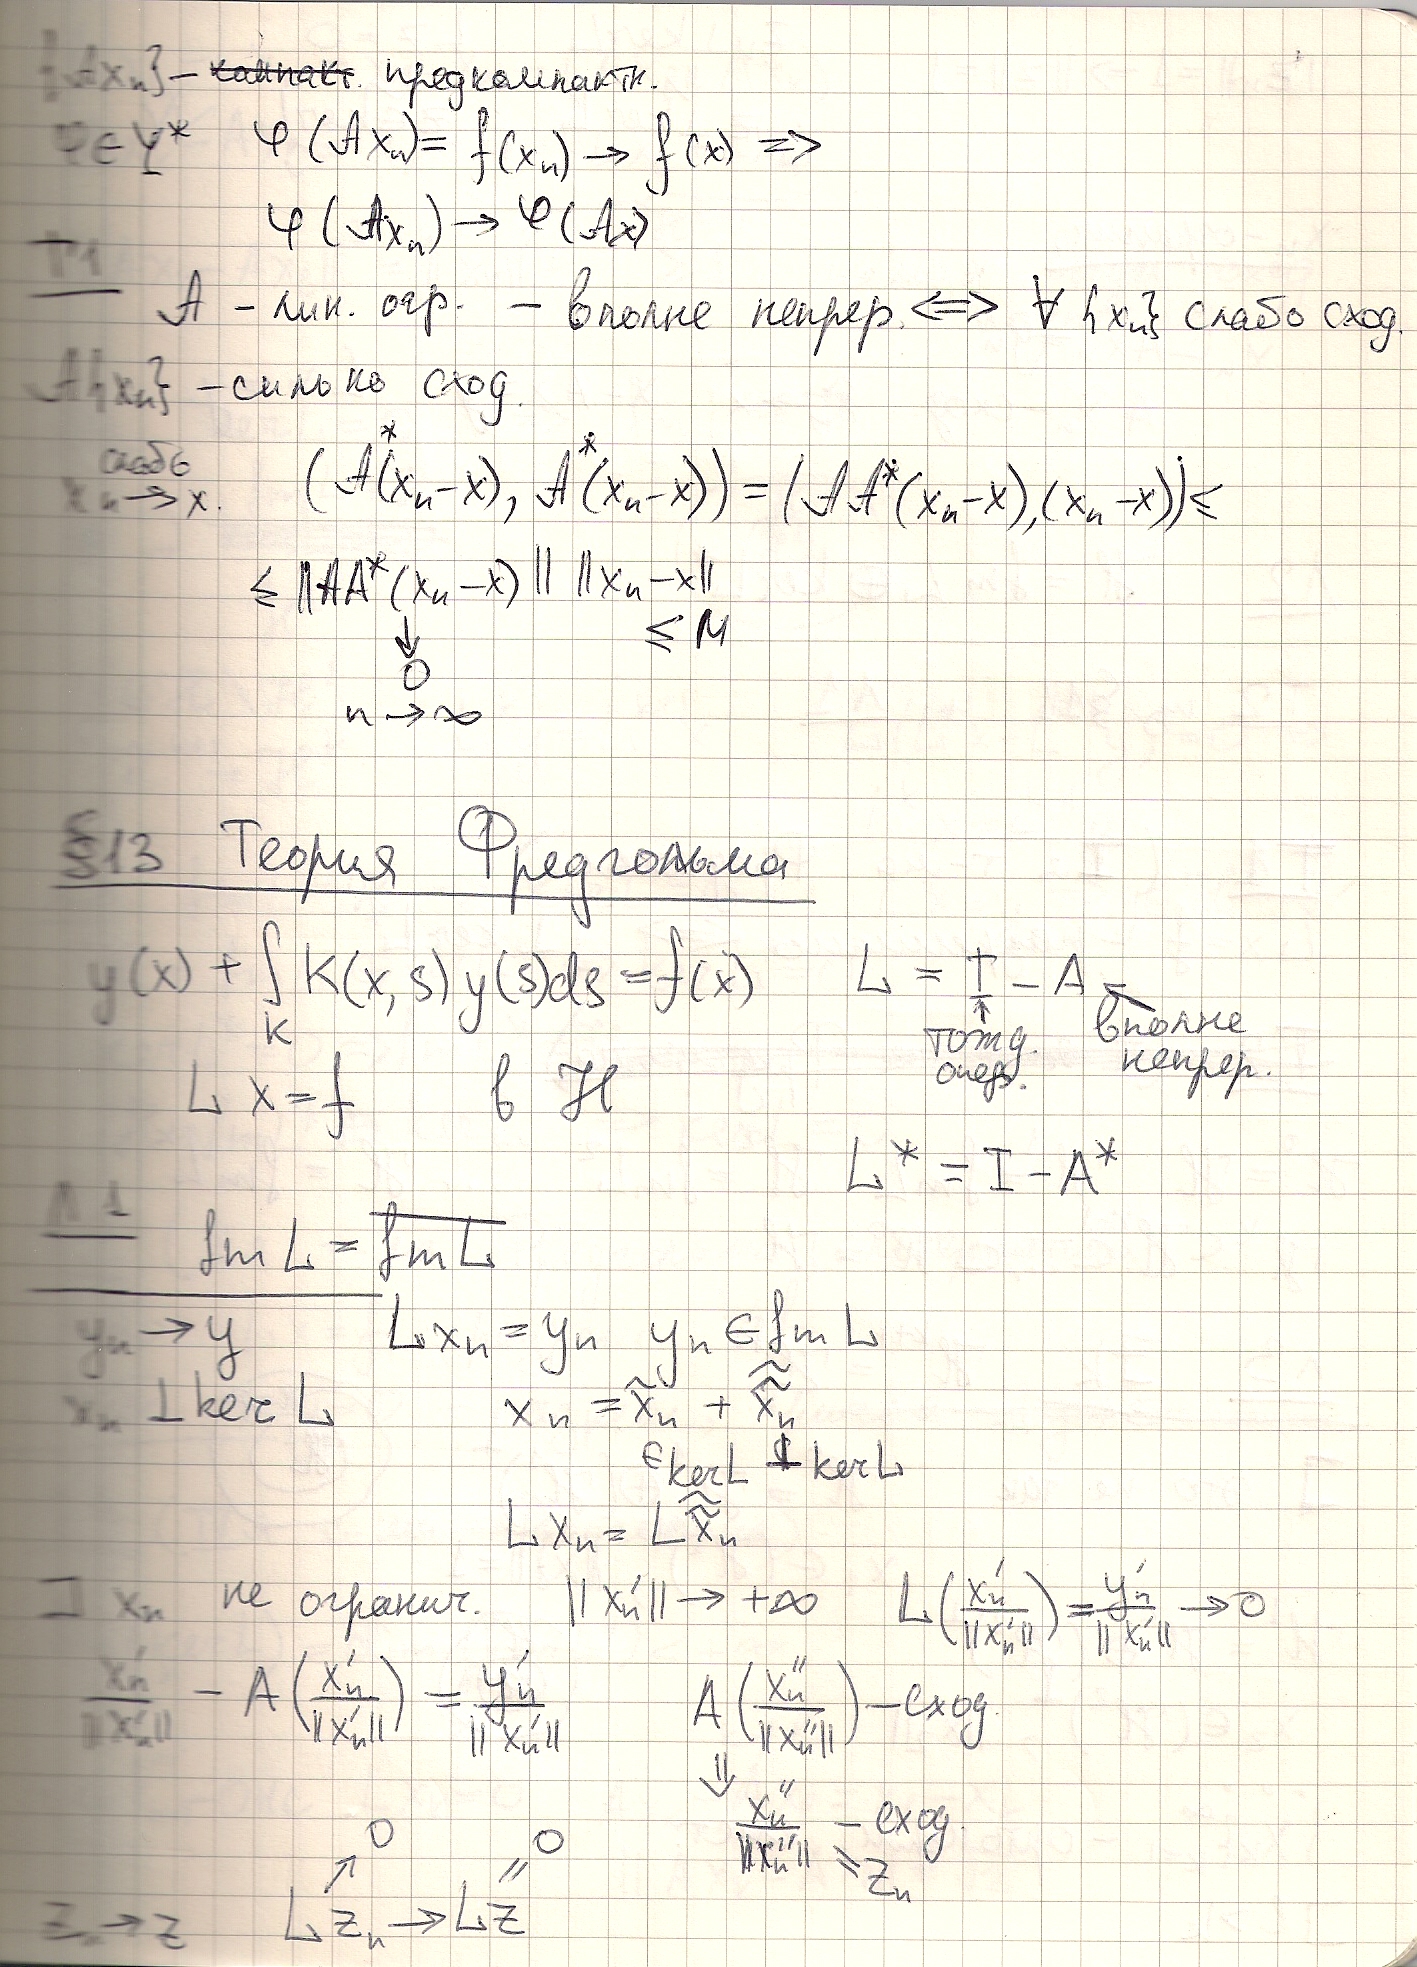 {Axₙ} – компакт. предкомпактн.
φ ∈ Y* φ(Axₙ) = f(xₙ) → f(x) =>
φ(Axₙ) → φ(Ax)
T1
A – лин. огр. – вполне непрер. <=> ∀ {xₙ} слабо сход.
A{xₙ} – сильно сход.
слабо
xₙ → x. (A*(xₙ–x), A*(xₙ–x)) = (AA*(xₙ–x), (xₙ–x)) ≤
≤ ||AA*(xₙ–x)|| ||xₙ–x||
↓ ≤ M
0
n → ∞
§13 Теория Фредгольма
y(x) + ∫_K K(x,s) y(s)ds = f(x) L = I – A
↑ тожд. опер. вполне непрер.
L x = f в H
L* = I – A*
Л1
Im L = \overline{Im L}
yₙ → y Lxₙ = yₙ yₙ ∈ Im L
xₙ ⊥ ker L xₙ = x̃ₙ + x̃̃ₙ
∈ ker L ⊥ ker L
Lxₙ = Lx̃̃ₙ
] xₙ не огранич. ||xₙ'|| → +∞ L(xₙ'/||xₙ'||) = yₙ'/||xₙ'|| → 0
xₙ'/||xₙ'|| – A(xₙ'/||xₙ'||) = yₙ'/||xₙ'|| A(xₙ''/||xₙ''||) – сход.
⇓
xₙ''/||xₙ''|| – сход.
0 0 = zₙ
↗ //
zₙ → z Lzₙ → Lz